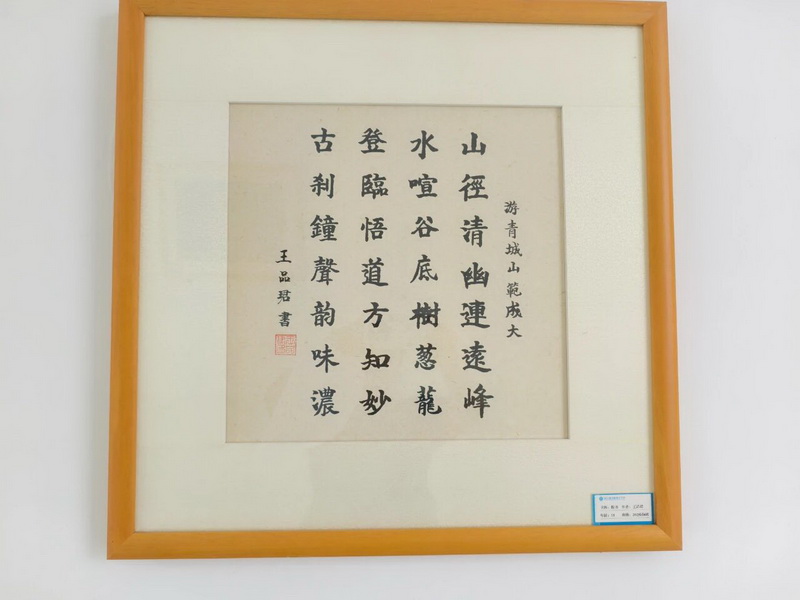 游青城山 範成大
山徑清幽連遠峰
水喧谷底樹葱龍
登臨悟道方知妙
古刹鐘聲韵味濃
王品君書